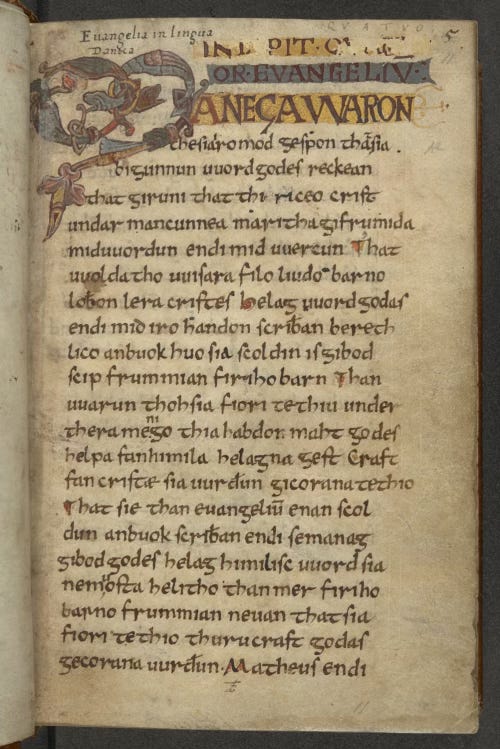 Evangelia in lingua
Danica
5
INCIPIT QUATUOR
EVANGELIŪ
MANEGA WARON
the sia iro mod gespon that sia
bigunnun uuord godes reckean
that giruni that thi riceo crist
undar mancunnea maritha gifrumida
mid uuordun endi mid uuercun That
uuolda tho uuisara filo liudo barno
loƀon lera cristes helag uuord godas
endi mid iro handon scriƀan bereth
lico an buok huo sia scoldin is gibod
scip frummian firiho barn Than
uuarun thoh sia fiori te thiu under
thera menigo thia habdon maht godes
helpa fan himila helagna gest Craft
fan cristæ sia uurđun gicorana te thio
That sie than evangeliū enan scol
dun an buok scriƀan endi so manag
gibod godes helag himilisc uuord sia
ne mosta helitho than mer firiho
barno frummian neuan that sia
fiori te thio thuru craft godas
gecorana uurđun Matheus endi